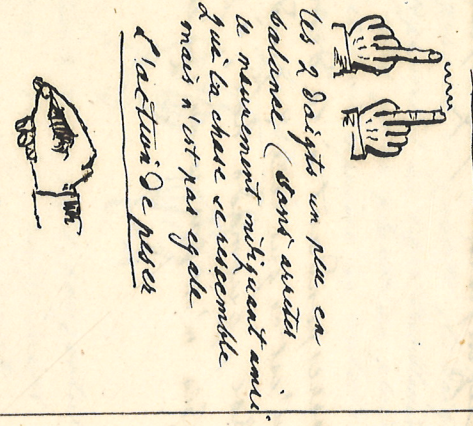 les 2 doigts un peu en
balance (sans arreter
le mouvement indiquant ainsi
que la chose se ressemble
mais n'est pas egale
L'action de peser